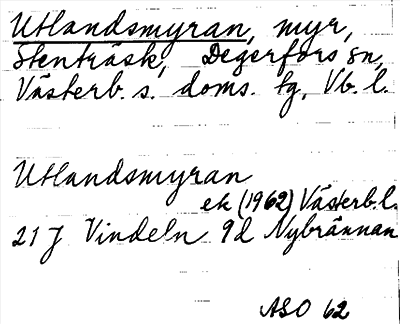 Utlandsmyran, myr,
Stenträsk, Degerfors sn,
Västerb. s. doms. tg, Vb. l.
Utlandsmyran
ek (1962) Västerb.l.
21 J Vindeln 9d Nybrännan
ASO 62